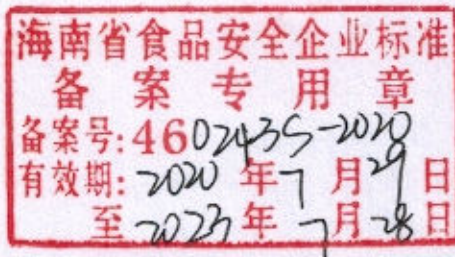 海南省食品安全企业标准
备案专用章
备案号:460243S-2020
有效期:2020年7月29日
至2023年7月28日